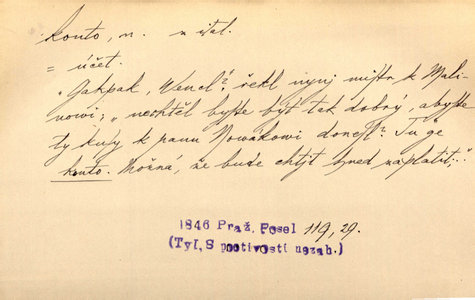 konto, n. z ital.
= účet.
„Jakpak, Wencl?“, řekl nynj mistr k Mali-
nowi; „nechtěl byste být tak dobrý, abyste
ty kusy k panu Nowákowi donesl? Tu je
konto. Možná, že bude chtjt hned zaplatit;“
1846 Praž. Posel 119, 29.
(Tyl, S poctivostí nezab.)